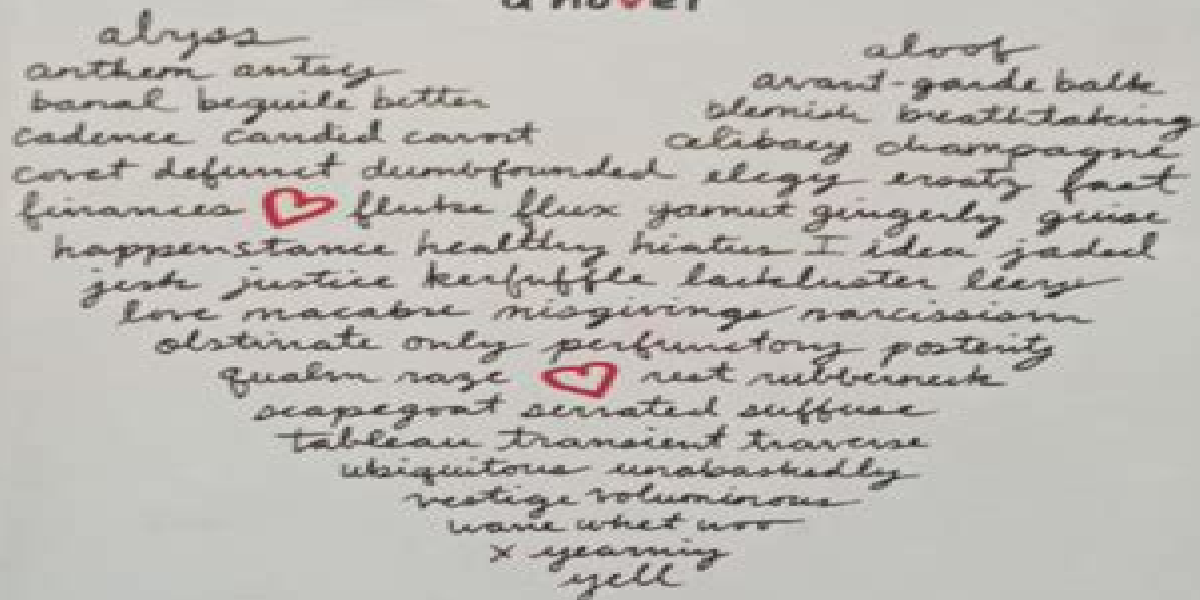 a novel
abyss aloof
anthem antsy avant-garde balk
banal beguile better blemish breathtaking
cadence candid cavort celibacy champagne
covet defunct dumbfounded elegy ersatz fast
finances fluke flux gamut gingerly guise
happenstance healthy hiatus I idea jaded
jerk justice kerfuffle lackluster leery
love macabre misgivings narcissism
obstinate only perfunctory posterity
qualm raze rest rubberneck
scapegoat serrated suffuse
tableau transient traverse
ubiquitous unabashedly
vestige voluminous
wane whet woo
x yearning
yell